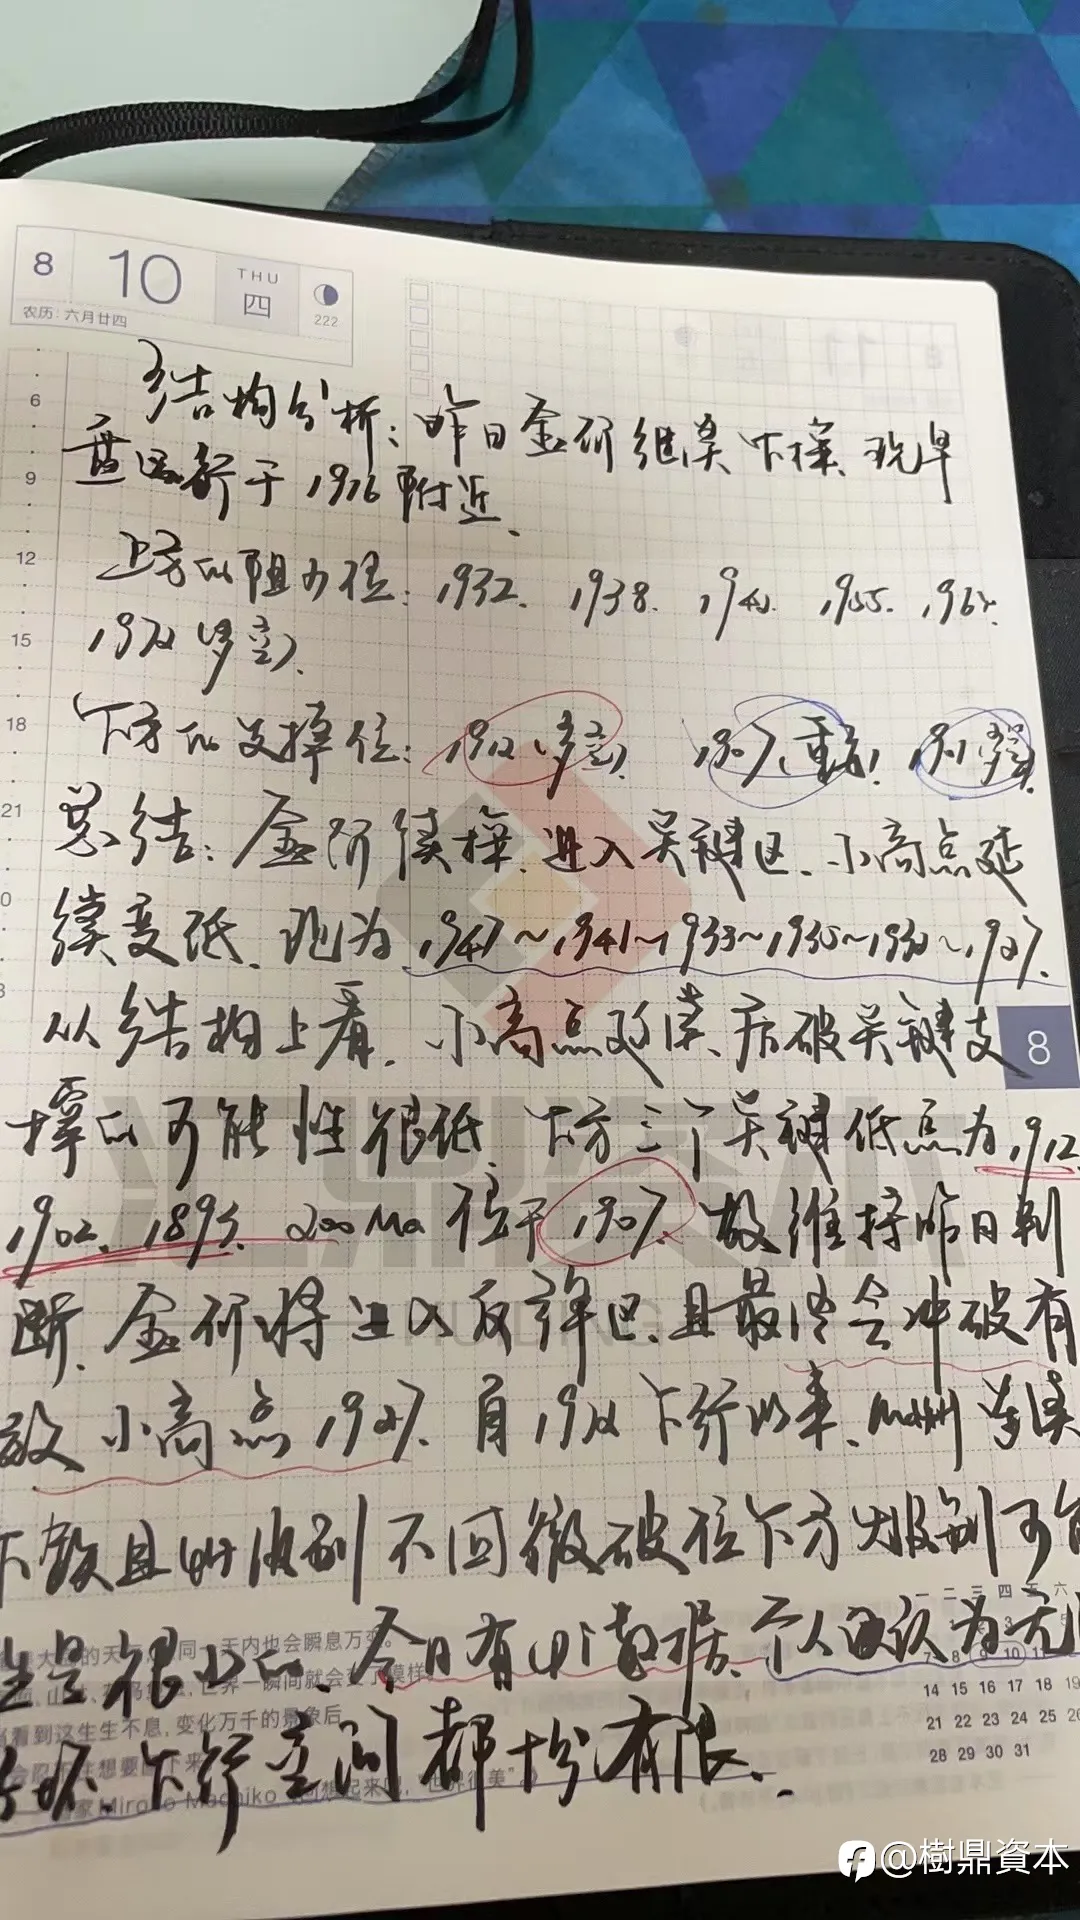 8 10 THU 四 222
农历: 六月廿四
结构分析: 昨日金价继续下探、现早
盘运行于1916附近、
上方的阻力位: 1932. 1938. 1955.
(多空).
下方的支撑位: 1912 (多空) 1907 (重点) 1901 (多空)
总结: 金价续探、进入关键区、小高点延
续变低、现为 1947~1941~1938~1935~1930~1927、
从结构上看、小高点延续、后破关键支
撑的可能性很低、下方三个关键低点为1912
1902、1893、200Ma位于1907、故维持昨日判
断、金价将进入反弹区、且最终会冲破有
效小高点1927、自 下行以来、 连续
下数且 级别不回撤破位下方 级别可能
性是很小的、今日有 数据、个人认为无论
好坏、下行空间都十分有限、
6
9
12
15
18
21
8
一 二 三 四 五 六
7 8 9 10 11
14 15 16 17 18 19
21 22 23 24 25 26
28 29 30 31
同一天内也会瞬息万变。
世界一瞬间就会变了模样。
当看到这生生不息, 变化万千的景象后,
"世界很美"
@樹鼎資本